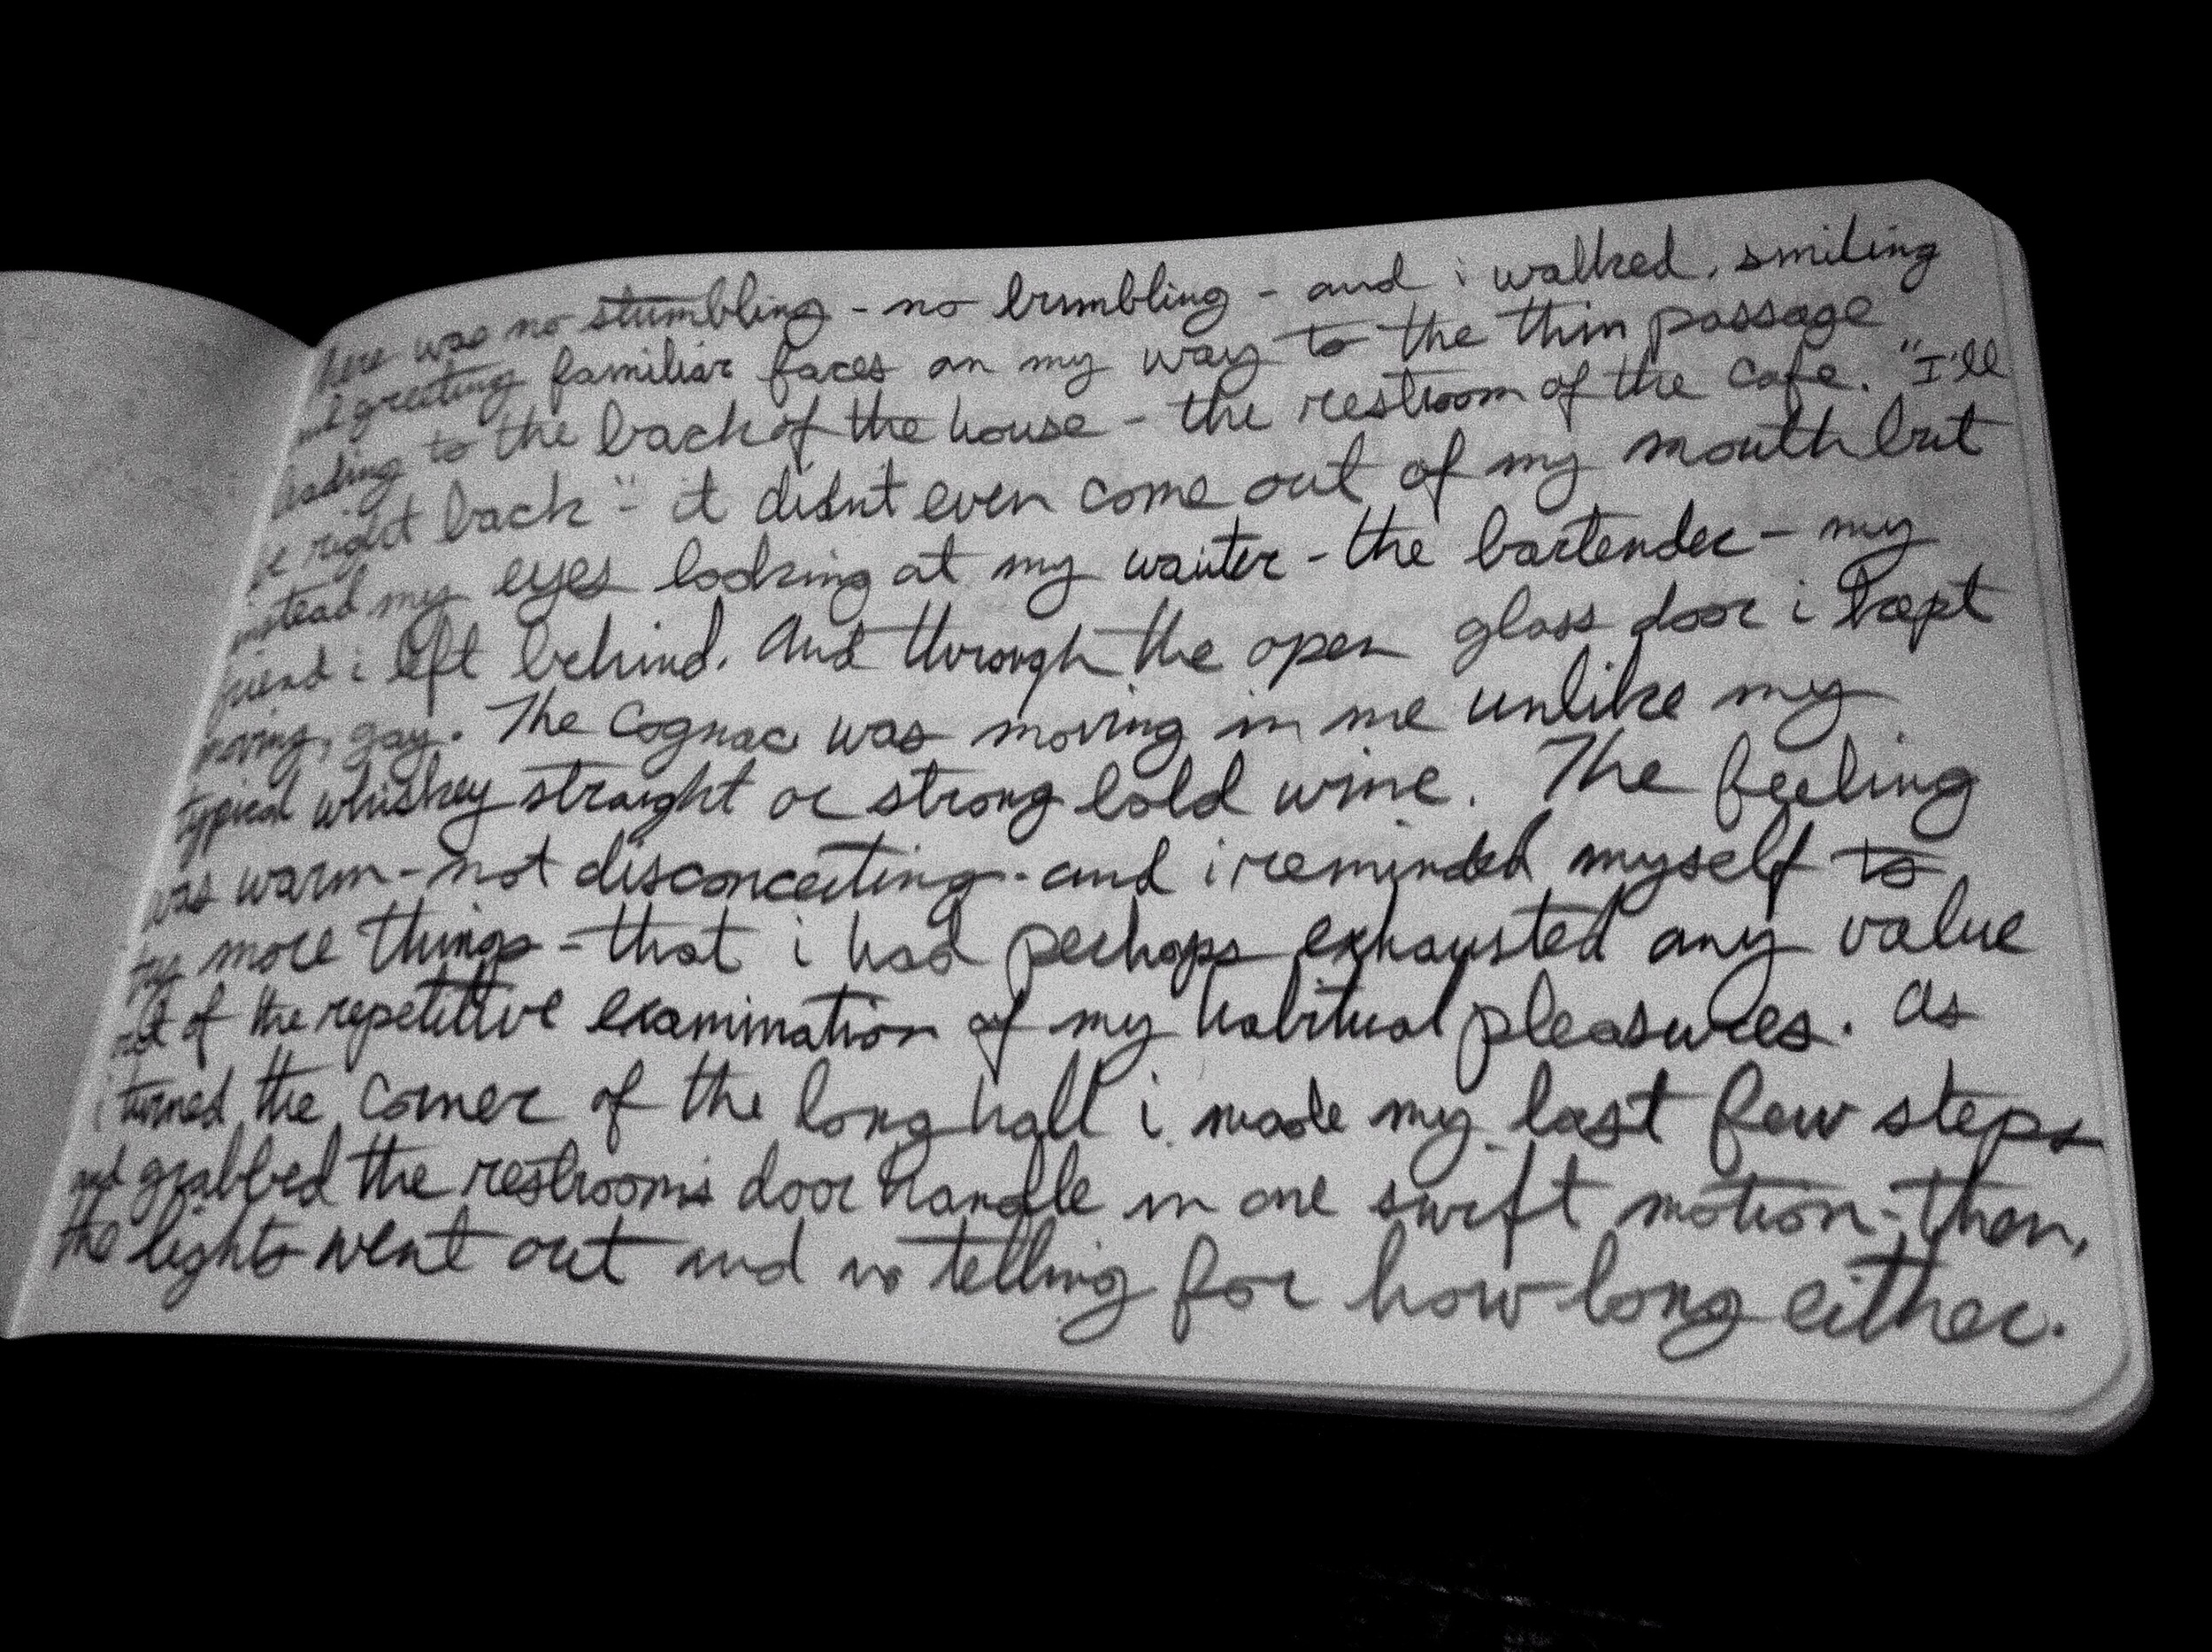 here was no stumbling - no bumbling - and i walked, smiling
and greeting familiar faces on my way to the thin passage
leading to the back of the house - the restroom of the cafe. "I'll
be right back" - it didn't even come out of my mouth but
instead my eyes looking at my waiter - the bartender - my
friend i left behind. And through the open glass door i kept
moving, gay. The Cognac was moving in me unlike my
typical whiskey straight or strong bold wine. The feeling
was warm - not disconcerting - and i reminded myself to
try more things - that i had perhaps exhausted any value
out of the repetitive examination of my habitual pleasures. As
i turned the corner of the long hall i made my last few steps
and grabbed the restroom's door handle in one swift motion - then,
the lights went out and no telling for how long either.